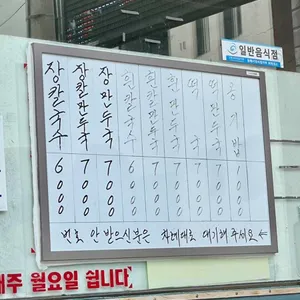 일반음식점
장칼국수 6000
장칼만두국 7000
장만두국 7000
흰칼국수 6000
흰칼만두국 7000
흰만두국 7000
떡만두국 7000
떡국 7000
공기밥 1000
번호 안 받으신분은 차례대로 대기해 주세요 ←
매주 월요일 쉽니다